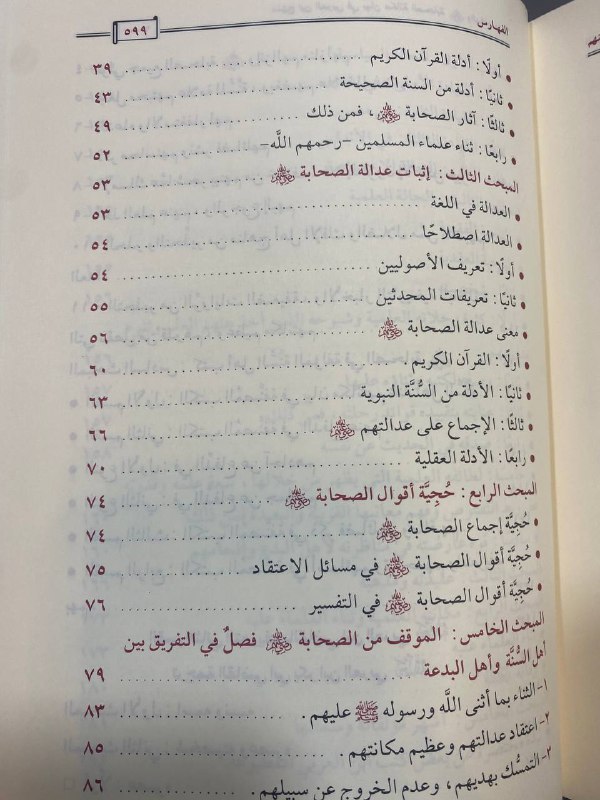 الفهارس
٥٩٩
• أولًا: أدلة القرآن الكريم ........ ٣٩
• ثانيًا: أدلة من السنة الصحيحة ........ ٤٣
• ثالثًا: آثار الصحابة ﵃، فمن ذلك ........ ٤٩
• رابعًا: ثناء علماء المسلمين -رحمهم اللَّه- ........ ٥٢
المبحث الثالث: إثبات عدالة الصحابة ﵃ ........ ٥٣
• العدالة في اللغة ........ ٥٣
• العدالة اصطلاحًا ........ ٥٤
• أولًا: تعريف الأصوليين ........ ٥٤
• ثانيًا: تعريفات المحدثين ........ ٥٥
• معنى عدالة الصحابة ﵃ ........ ٥٦
• أولًا: القرآن الكريم ........ ٦٠
• ثانيًا: الأدلة من السُّنَّة النبوية ........ ٦٣
• ثالثًا: الإجماع على عدالتهم ﵃ ........ ٦٦
• رابعًا: الأدلة العقلية ........ ٧٠
المبحث الرابع: حُجِيَّة أقوال الصحابة ﵃ ........ ٧٤
• حُجِيَّة إجماع الصحابة ﵃ ........ ٧٤
• حُجِيَّة أقوال الصحابة ﵃ في مسائل الاعتقاد ........ ٧٥
• حُجِيَّة أقوال الصحابة ﵃ في التفسير ........ ٧٦
المبحث الخامس: الموقف من الصحابة ﵃ فصلٌ في التفريق بين
أهل السُّنَّة وأهل البدعة ........ ٧٩
١- الثناء بما أثنى اللَّه ورسوله ﷺ عليهم. ........ ٨٣
٢- اعتقاد عدالتهم وعظيم مكانتهم. ........ ٨٥
٣- التمسُّك بهديهم، وعدم الخروج عن سبيلهم. ........ ٨٦